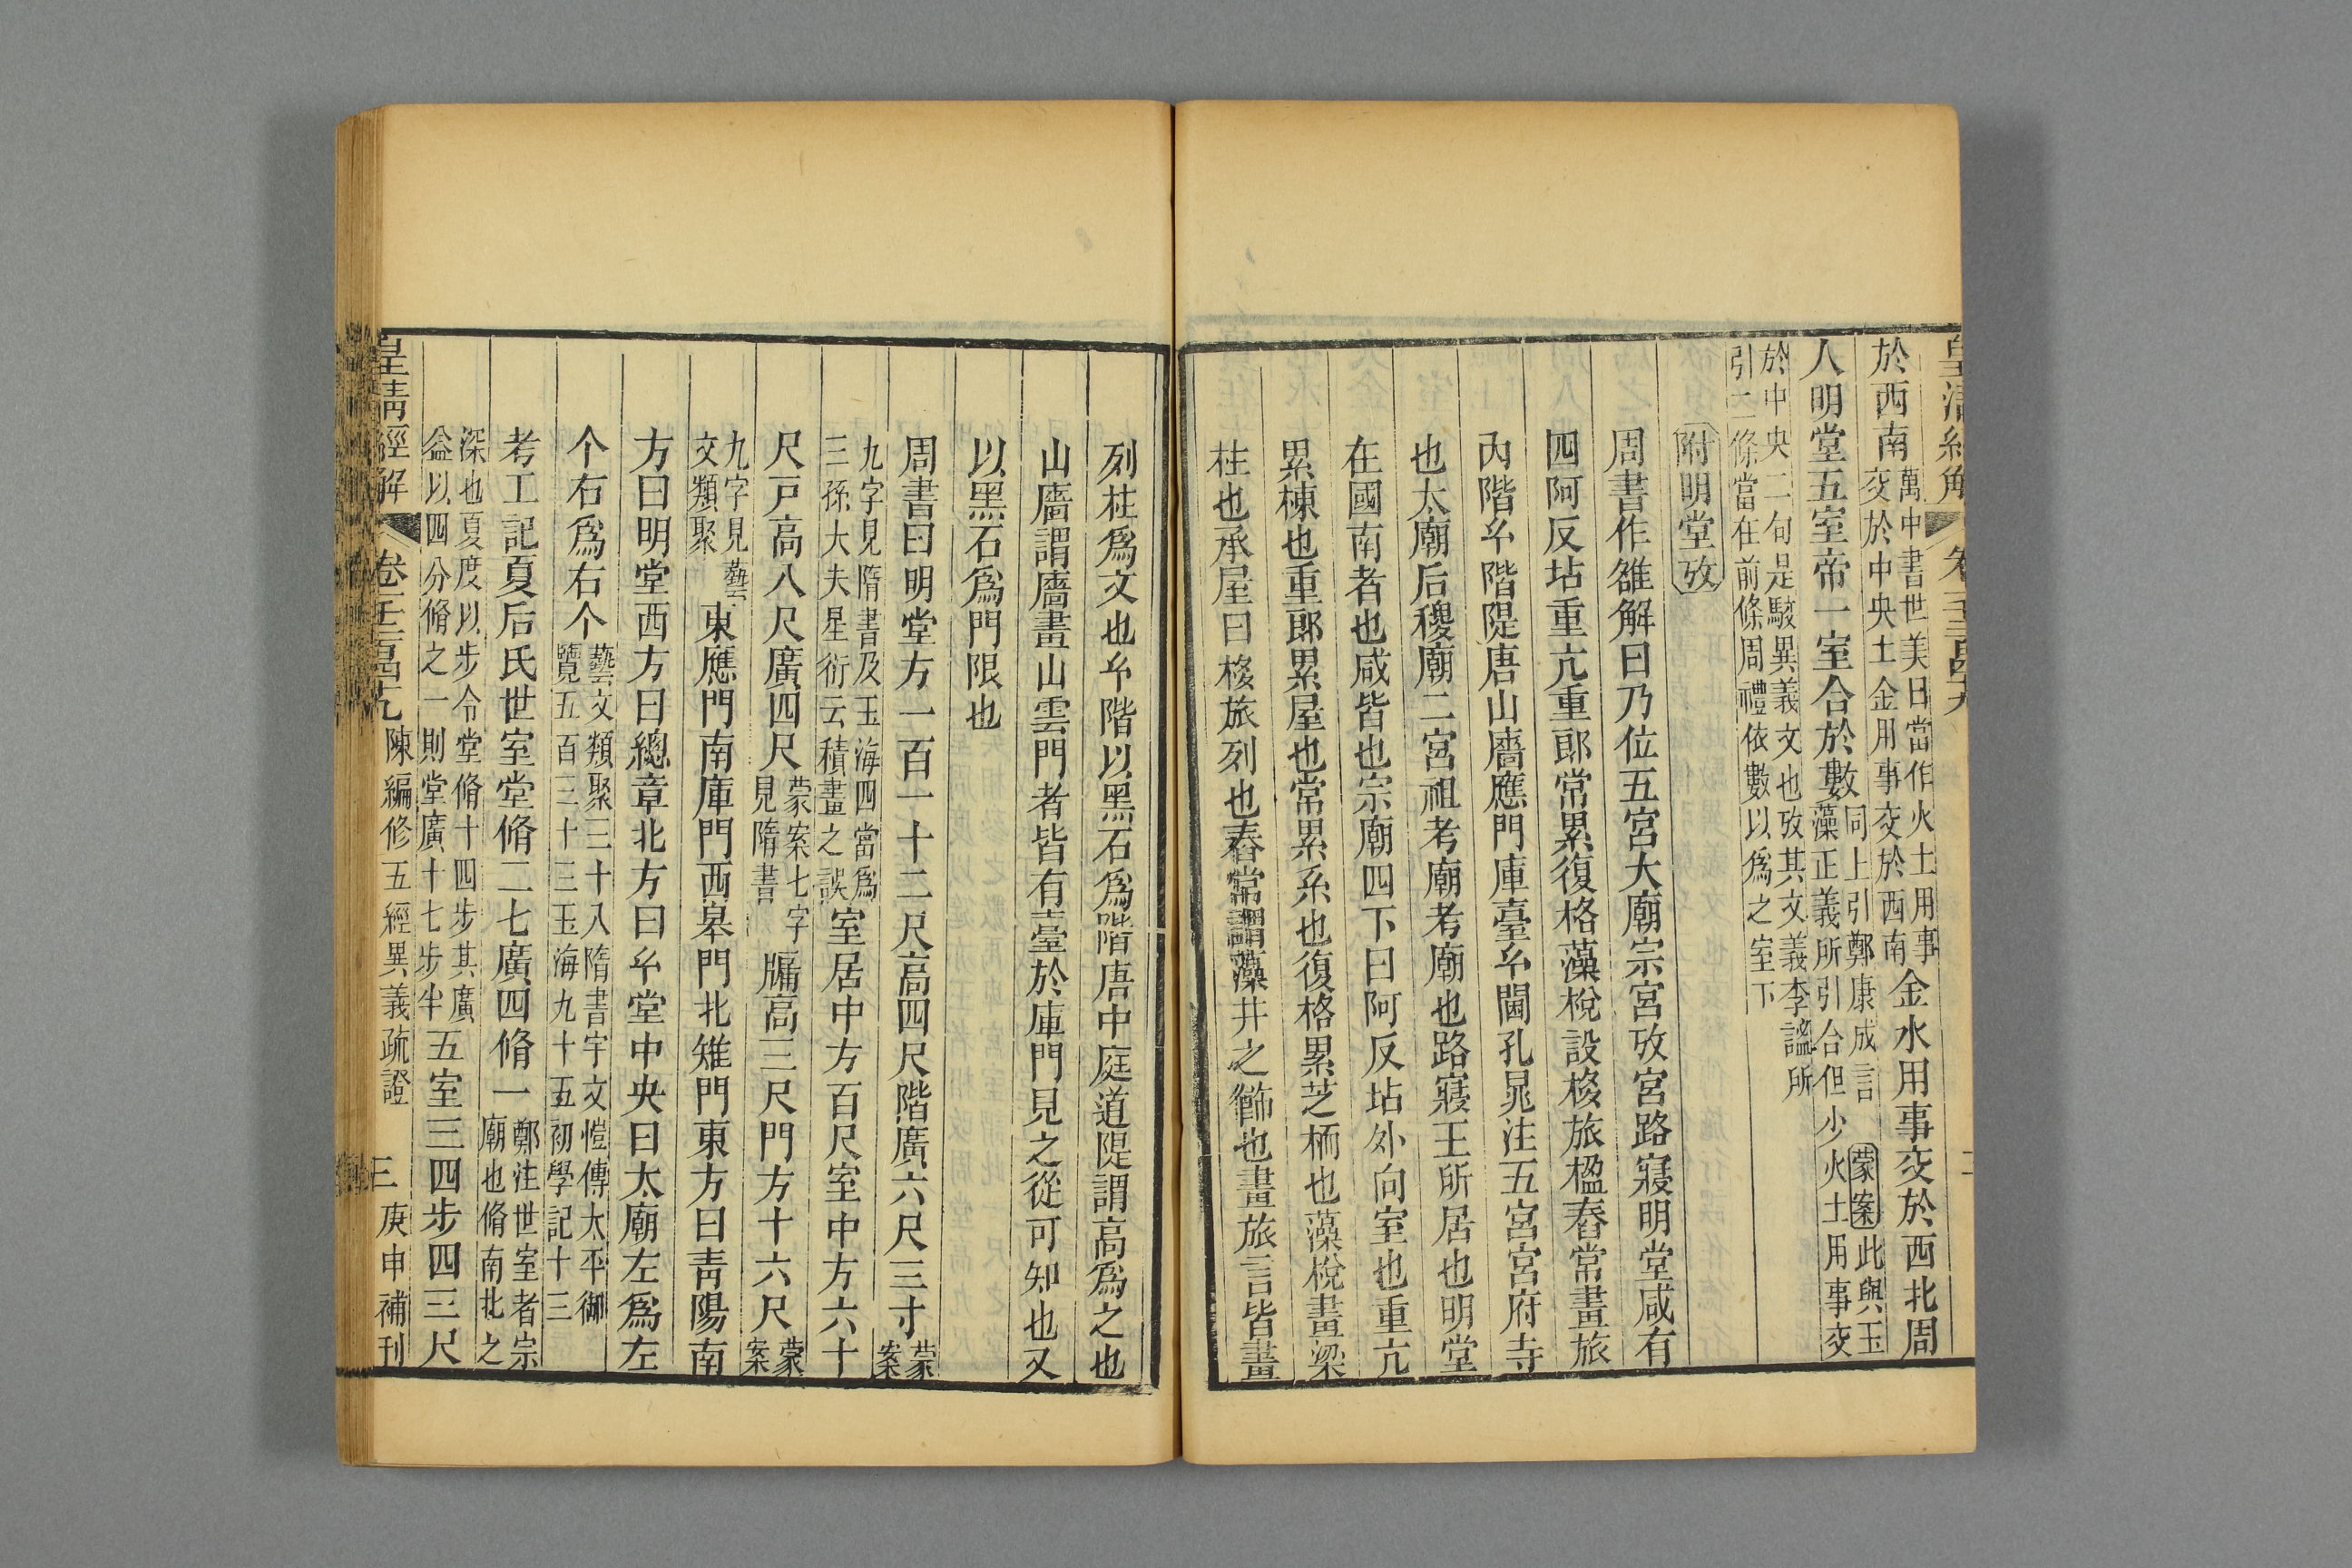 於西南萬中書世美曰當作火土用事交於中央土金用事交於西南金水用事交於西北周
人明堂五室帝一室合於數同上引鄭康成言藻正義所引合但少火土用事交蒙案此與玉
於中央二句是駁異義文也攷其文義李謐所
引二條當在前條周禮依數以爲之室下
附明堂攷
周書作雒解曰乃位五宮大廟宗宮攷宮路寢明堂咸有
四阿反坫重亢重郎常累復格藻梲設移旅楹舂常畫旅
內階幺階隄唐山廧應門庫臺幺閫孔晁注五宮宮府寺
也太廟后稷廟二宮祖考廟考廟也路寢王所居也明堂
在國南者也咸皆也宗廟四下曰阿反坫外向室也重亢
累棟也重郎累屋也常累系也復格累芝栭也藻梲畫梁
柱也承屋曰移旅列也舂常謂藻井之飾也畫旅言皆畫
列柱爲文也幺階以黑石爲階唐中庭道隄謂高爲之也
山廧謂廧畫山雲門者皆有臺於庫門見之從可知也又
以黑石爲門限也
周書曰明堂方一百一十二尺高四尺階廣六尺三寸蒙案
九字見隋書及玉海四當爲三孫大夫星衍云積畫之誤室居中方百尺室中方六十
尺戸高八尺廣四尺蒙案七字見隋書牖高三尺門方十六尺蒙案
九字見藝文類聚東應門南庫門西皋門北雉門東方曰靑陽南
方曰明堂西方曰總章北方曰幺堂中央曰太廟左爲左
个右爲右个藝文類聚三十八隋書宇文愷傳太平御覽五百三十三玉海九十五初學記十三
考工記夏后氏世室堂脩二七廣四脩一鄭注世室者宗廟也脩南北之
深也夏度以步令堂脩十四步其廣益以四分脩之一則堂廣十七步半五室三四步四三尺
皇清經解 卷 陳編修五經異義疏證 三 庚申補刊